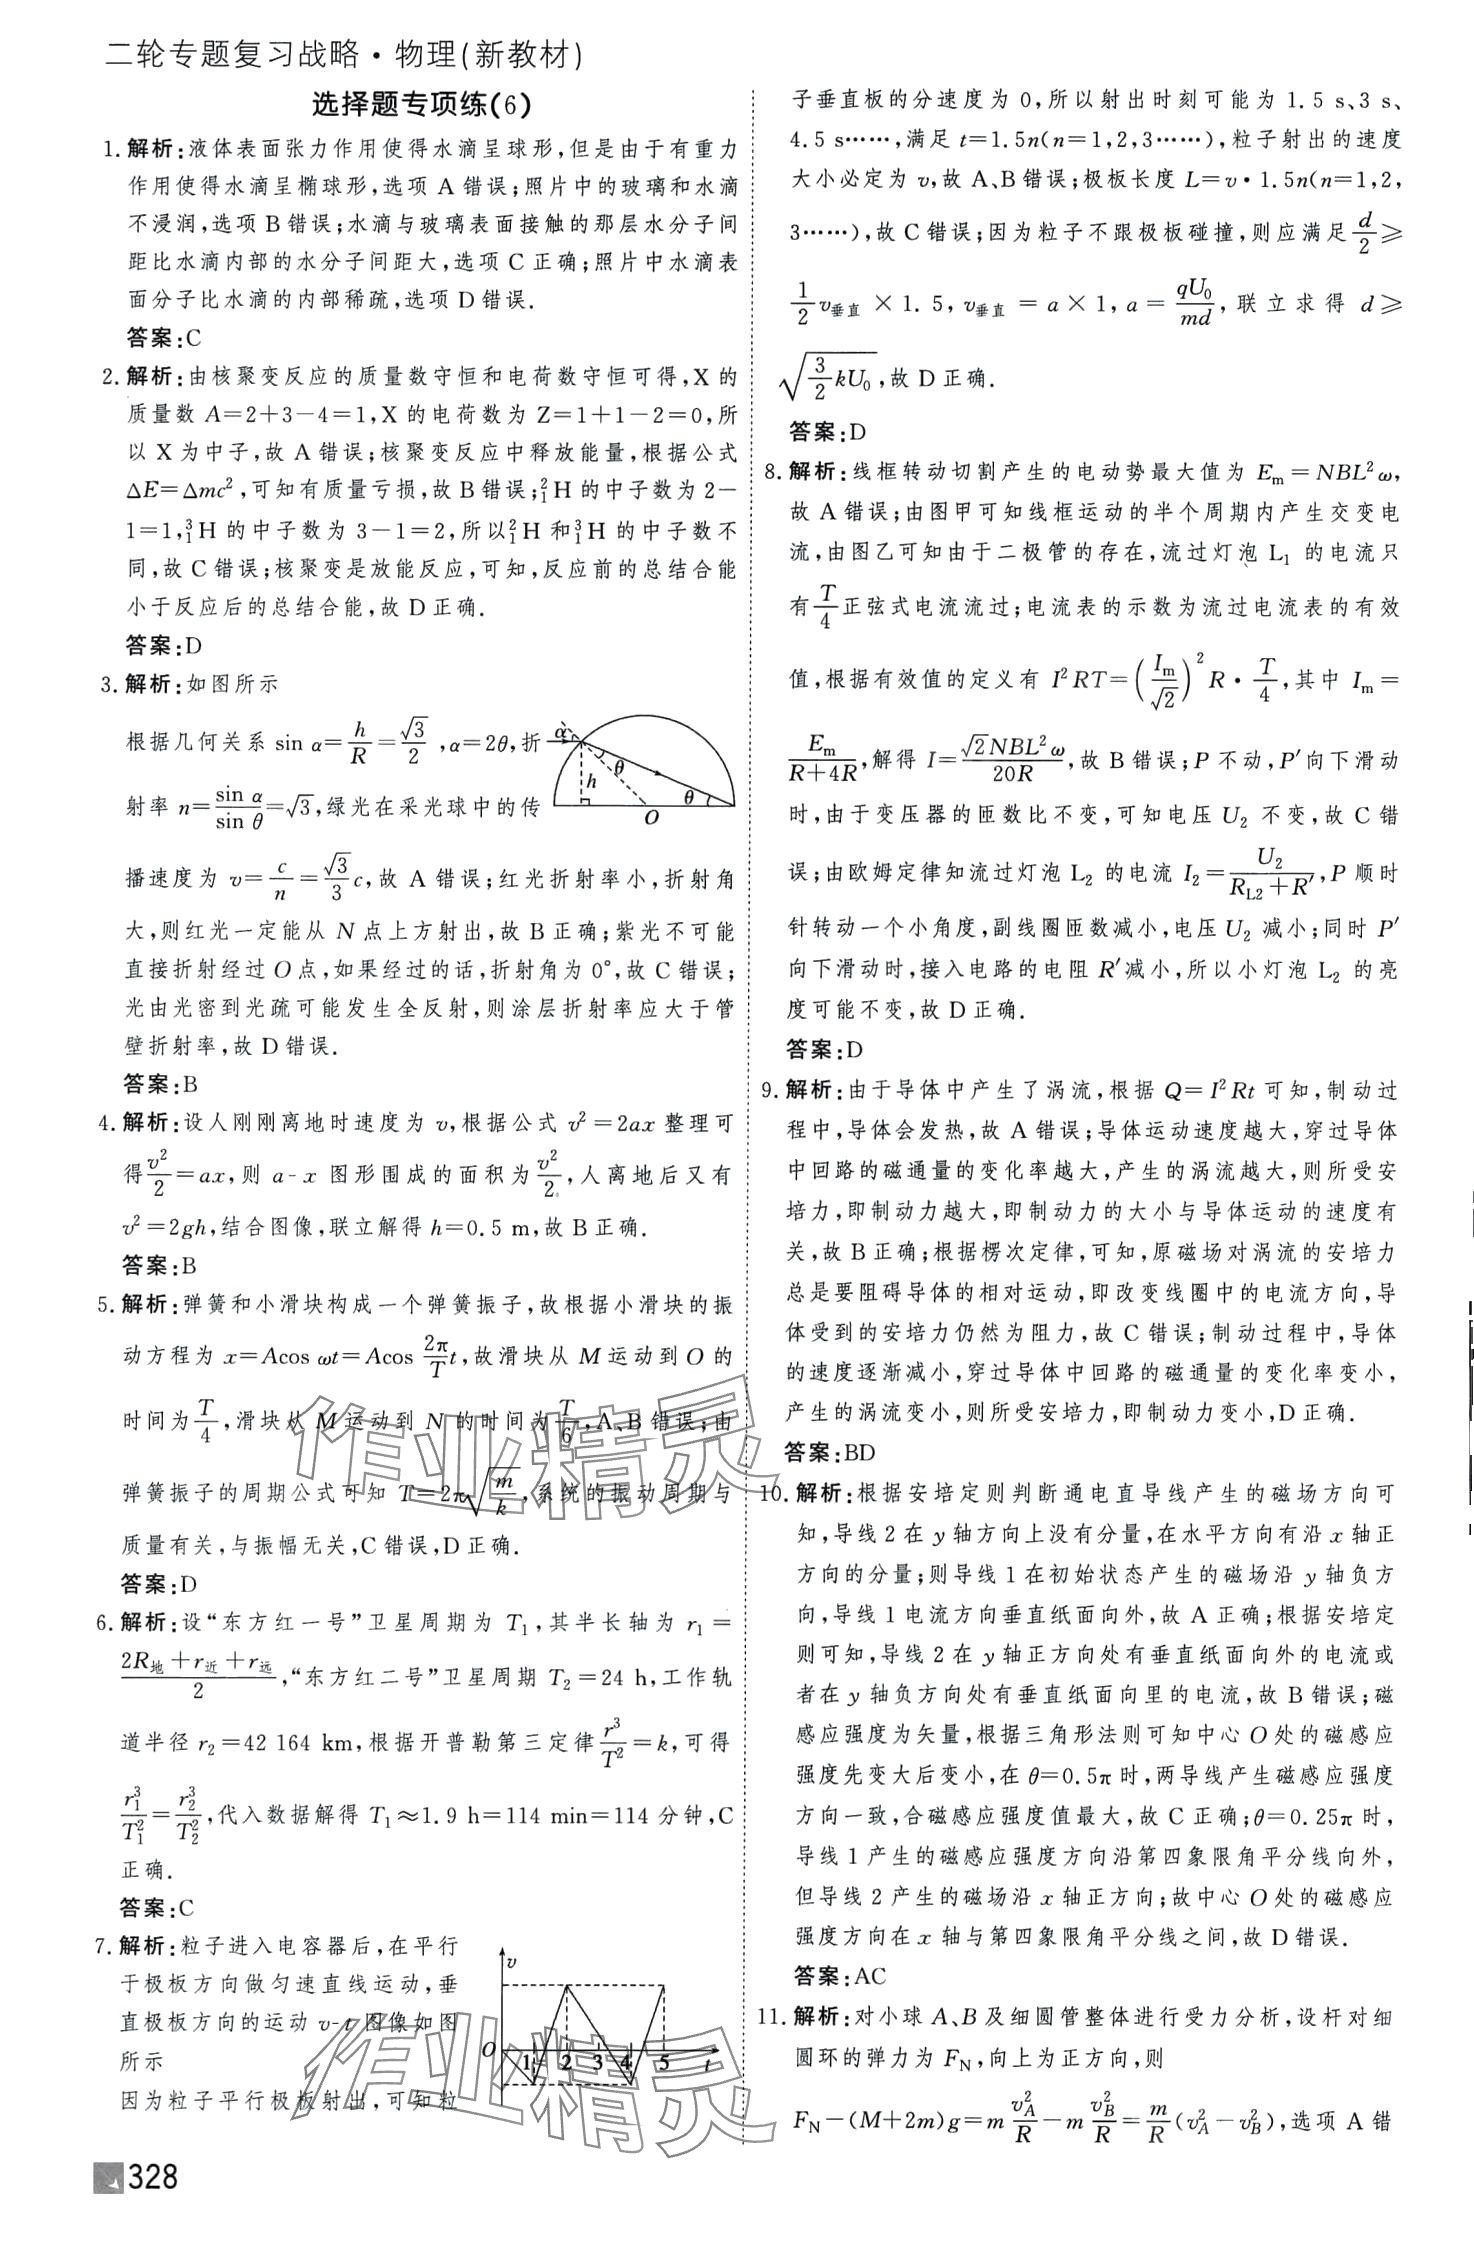 二轮专题复习战略·物理(新教材)
选择题专项练(6)
1.解析:液体表面张力作用使得水滴呈球形,但是由于有重力
作用使得水滴呈椭球形,选项 A 错误;照片中的玻璃和水滴
不浸润,选项 B 错误;水滴与玻璃表面接触的那层水分子间
距比水滴内部的水分子间距大,选项 C 正确;照片中水滴表
面分子比水滴的内部稀疏,选项 D 错误.
答案:C
2.解析:由核聚变反应的质量数守恒和电荷数守恒可得,X 的
质量数 A=2+3-4=1,X 的电荷数为 Z=1+1-2=0,所
以 X 为中子,故 A 错误;核聚变反应中释放能量,根据公式
ΔE=Δmc²,可知有质量亏损,故 B 错误;²₁H 的中子数为 2-
1=1,³₁H 的中子数为 3-1=2,所以²₁H 和³₁H 的中子数不
同,故 C 错误;核聚变是放能反应,可知,反应前的总结合能
小于反应后的总结合能,故 D 正确.
答案:D
3.解析:如图所示
根据几何关系 sin α=h/R=√3/2,α=2θ,折
射率 n=sin α/sin θ=√3,绿光在采光球中的传
α θ h θ O
播速度为 v=c/n=√3/3 c,故 A 错误;红光折射率小,折射角
大,则红光一定能从 N 点上方射出,故 B 正确;紫光不可能
直接折射经过 O 点,如果经过的话,折射角为 0°,故 C 错误;
光由光密到光疏可能发生全反射,则涂层折射率应大于管
壁折射率,故 D 错误.
答案:B
4.解析:设人刚刚离地时速度为 v,根据公式 v²=2ax 整理可
得v²/2=ax,则 a-x 图形围成的面积为v²/2,人离地后又有
v²=2gh,结合图像,联立解得 h=0.5 m,故 B 正确.
答案:B
5.解析:弹簧和小滑块构成一个弹簧振子,故根据小滑块的振
动方程为 x=Acos ωt=Acos 2π/T t,故滑块从 M 运动到 O 的
时间为T/4,滑块从 M 运动到 N 的时间为T/6,A、B 错误;由
弹簧振子的周期公式可知 T=2π√(m/k),系统的振动周期与
质量有关,与振幅无关,C 错误,D 正确.
答案:D
6.解析:设“东方红一号”卫星周期为 T₁,其半长轴为 r₁=
(2R地+r近+r远)/2,“东方红二号”卫星周期 T₂=24 h,工作轨
道半径 r₂=42 164 km,根据开普勒第三定律r³/T²=k,可得
r₁³/T₁²=r₂³/T₂²,代入数据解得 T₁≈1.9 h=114 min=114 分钟,C
正确.
答案:C
7.解析:粒子进入电容器后,在平行
于极板方向做匀速直线运动,垂
直极板方向的运动 v-t 图像如图
所示
因为粒子平行极板射出,可知粒
v O 1 2 3 4 5 t
子垂直板的分速度为 0,所以射出时刻可能为 1.5 s、3 s、
4.5 s……,满足 t=1.5n(n=1,2,3……),粒子射出的速度
大小必定为 v,故 A、B 错误;极板长度 L=v·1.5n(n=1,2,
3……),故 C 错误;因为粒子不跟极板碰撞,则应满足d/2≥
1/2 v垂直×1.5,v垂直=a×1,a=qU₀/md,联立求得 d≥
√(3/2 kU₀),故 D 正确.
答案:D
8.解析:线框转动切割产生的电动势最大值为 Eₘ=NBL²ω,
故 A 错误;由图甲可知线框运动的半个周期内产生交变电
流,由图乙可知由于二极管的存在,流过灯泡 L₁ 的电流只
有T/4正弦式电流流过;电流表的示数为流过电流表的有效
值,根据有效值的定义有 I²RT=(Iₘ/√2)²R·T/4,其中 Iₘ=
Eₘ/(R+4R),解得 I=√2NBL²ω/20R,故 B 错误;P 不动,P′向下滑动
时,由于变压器的匝数比不变,可知电压 U₂ 不变,故 C 错
误;由欧姆定律知流过灯泡 L₂ 的电流 I₂=U₂/(R_L2+R′),P 顺时
针转动一个小角度,副线圈匝数减小,电压 U₂ 减小;同时 P′
向下滑动时,接入电路的电阻 R′减小,所以小灯泡 L₂ 的亮
度可能不变,故 D 正确.
答案:D
9.解析:由于导体中产生了涡流,根据 Q=I²Rt 可知,制动过
程中,导体会发热,故 A 错误;导体运动速度越大,穿过导体
中回路的磁通量的变化率越大,产生的涡流越大,则所受安
培力,即制动力越大,即制动力的大小与导体运动的速度有
关,故 B 正确;根据楞次定律,可知,原磁场对涡流的安培力
总是要阻碍导体的相对运动,即改变线圈中的电流方向,导
体受到的安培力仍然为阻力,故 C 错误;制动过程中,导体
的速度逐渐减小,穿过导体中回路的磁通量的变化率变小,
产生的涡流变小,则所受安培力,即制动力变小,D 正确.
答案:BD
10.解析:根据安培定则判断通电直导线产生的磁场方向可
知,导线 2 在 y 轴方向上没有分量,在水平方向有沿 x 轴正
方向的分量;则导线 1 在初始状态产生的磁场沿 y 轴负方
向,导线 1 电流方向垂直纸面向外,故 A 正确;根据安培定
则可知,导线 2 在 y 轴正方向处有垂直纸面向外的电流或
者在 y 轴负方向处有垂直纸面向里的电流,故 B 错误;磁
感应强度为矢量,根据三角形法则可知中心 O 处的磁感应
强度先变大后变小,在 θ=0.5π 时,两导线产生磁感应强度
方向一致,合磁感应强度值最大,故 C 正确;θ=0.25π 时,
导线 1 产生的磁感应强度方向沿第四象限角平分线向外,
但导线 2 产生的磁场沿 x 轴正方向;故中心 O 处的磁感应
强度方向在 x 轴与第四象限角平分线之间,故 D 错误.
答案:AC
11.解析:对小球 A、B 及细圆管整体进行受力分析,设杆对细
圆环的弹力为 F_N,向上为正方向,则
F_N-(M+2m)g=m v_A²/R-m v_B²/R=m/R(v_A²-v_B²),选项 A 错
328
作业精灵
作业精灵